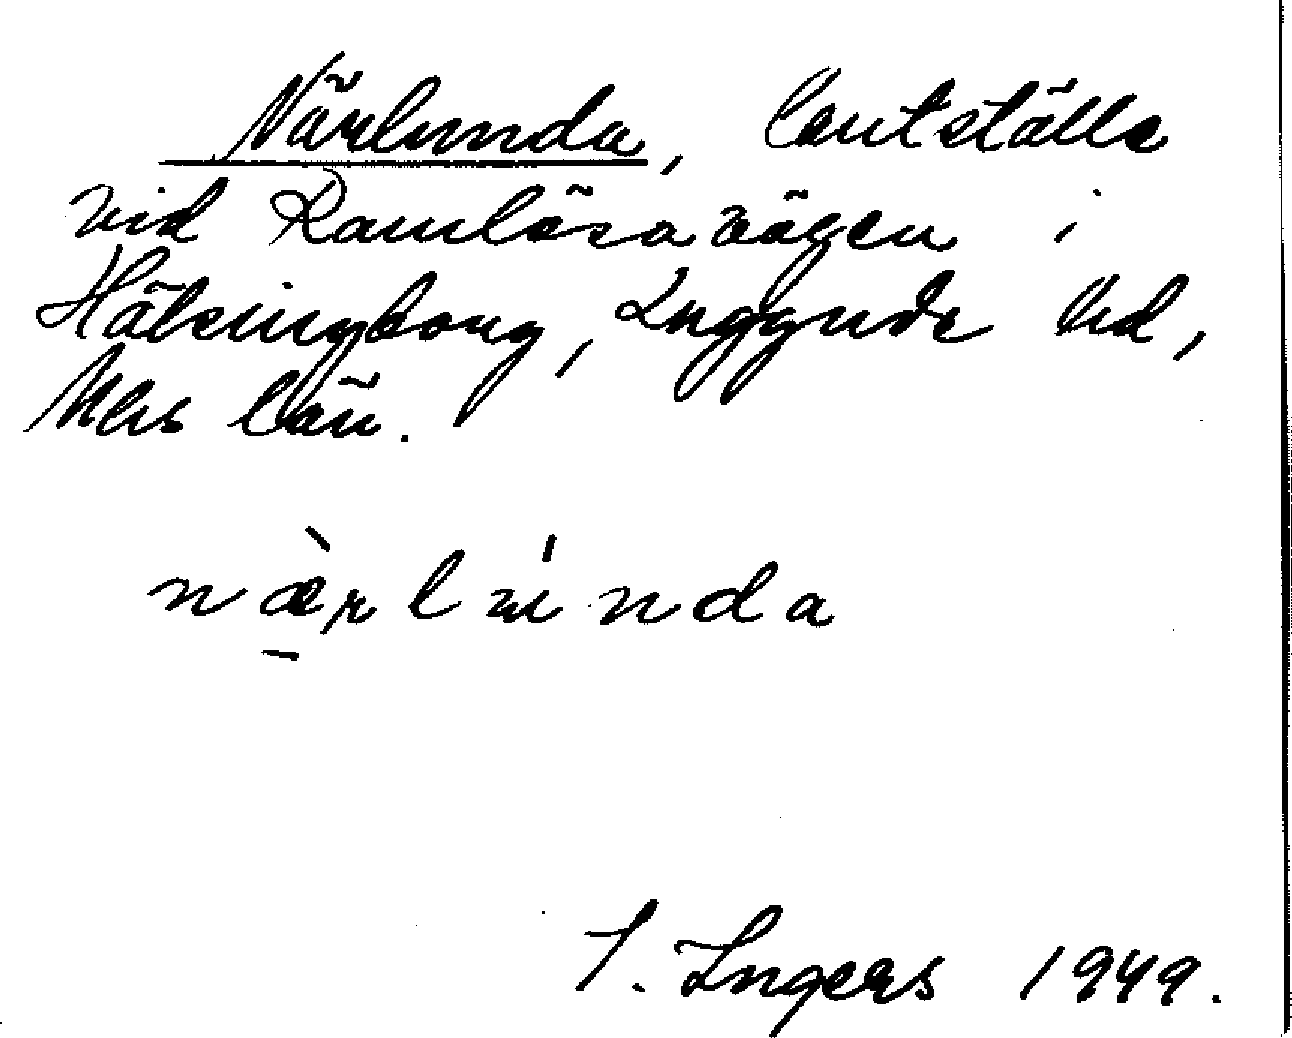 Närlunda, lantställe
vid Ramlösavägen i
Hälsingborg, Luggude hd,
Mhs län.
nærlunda
I. Ingers 1949.